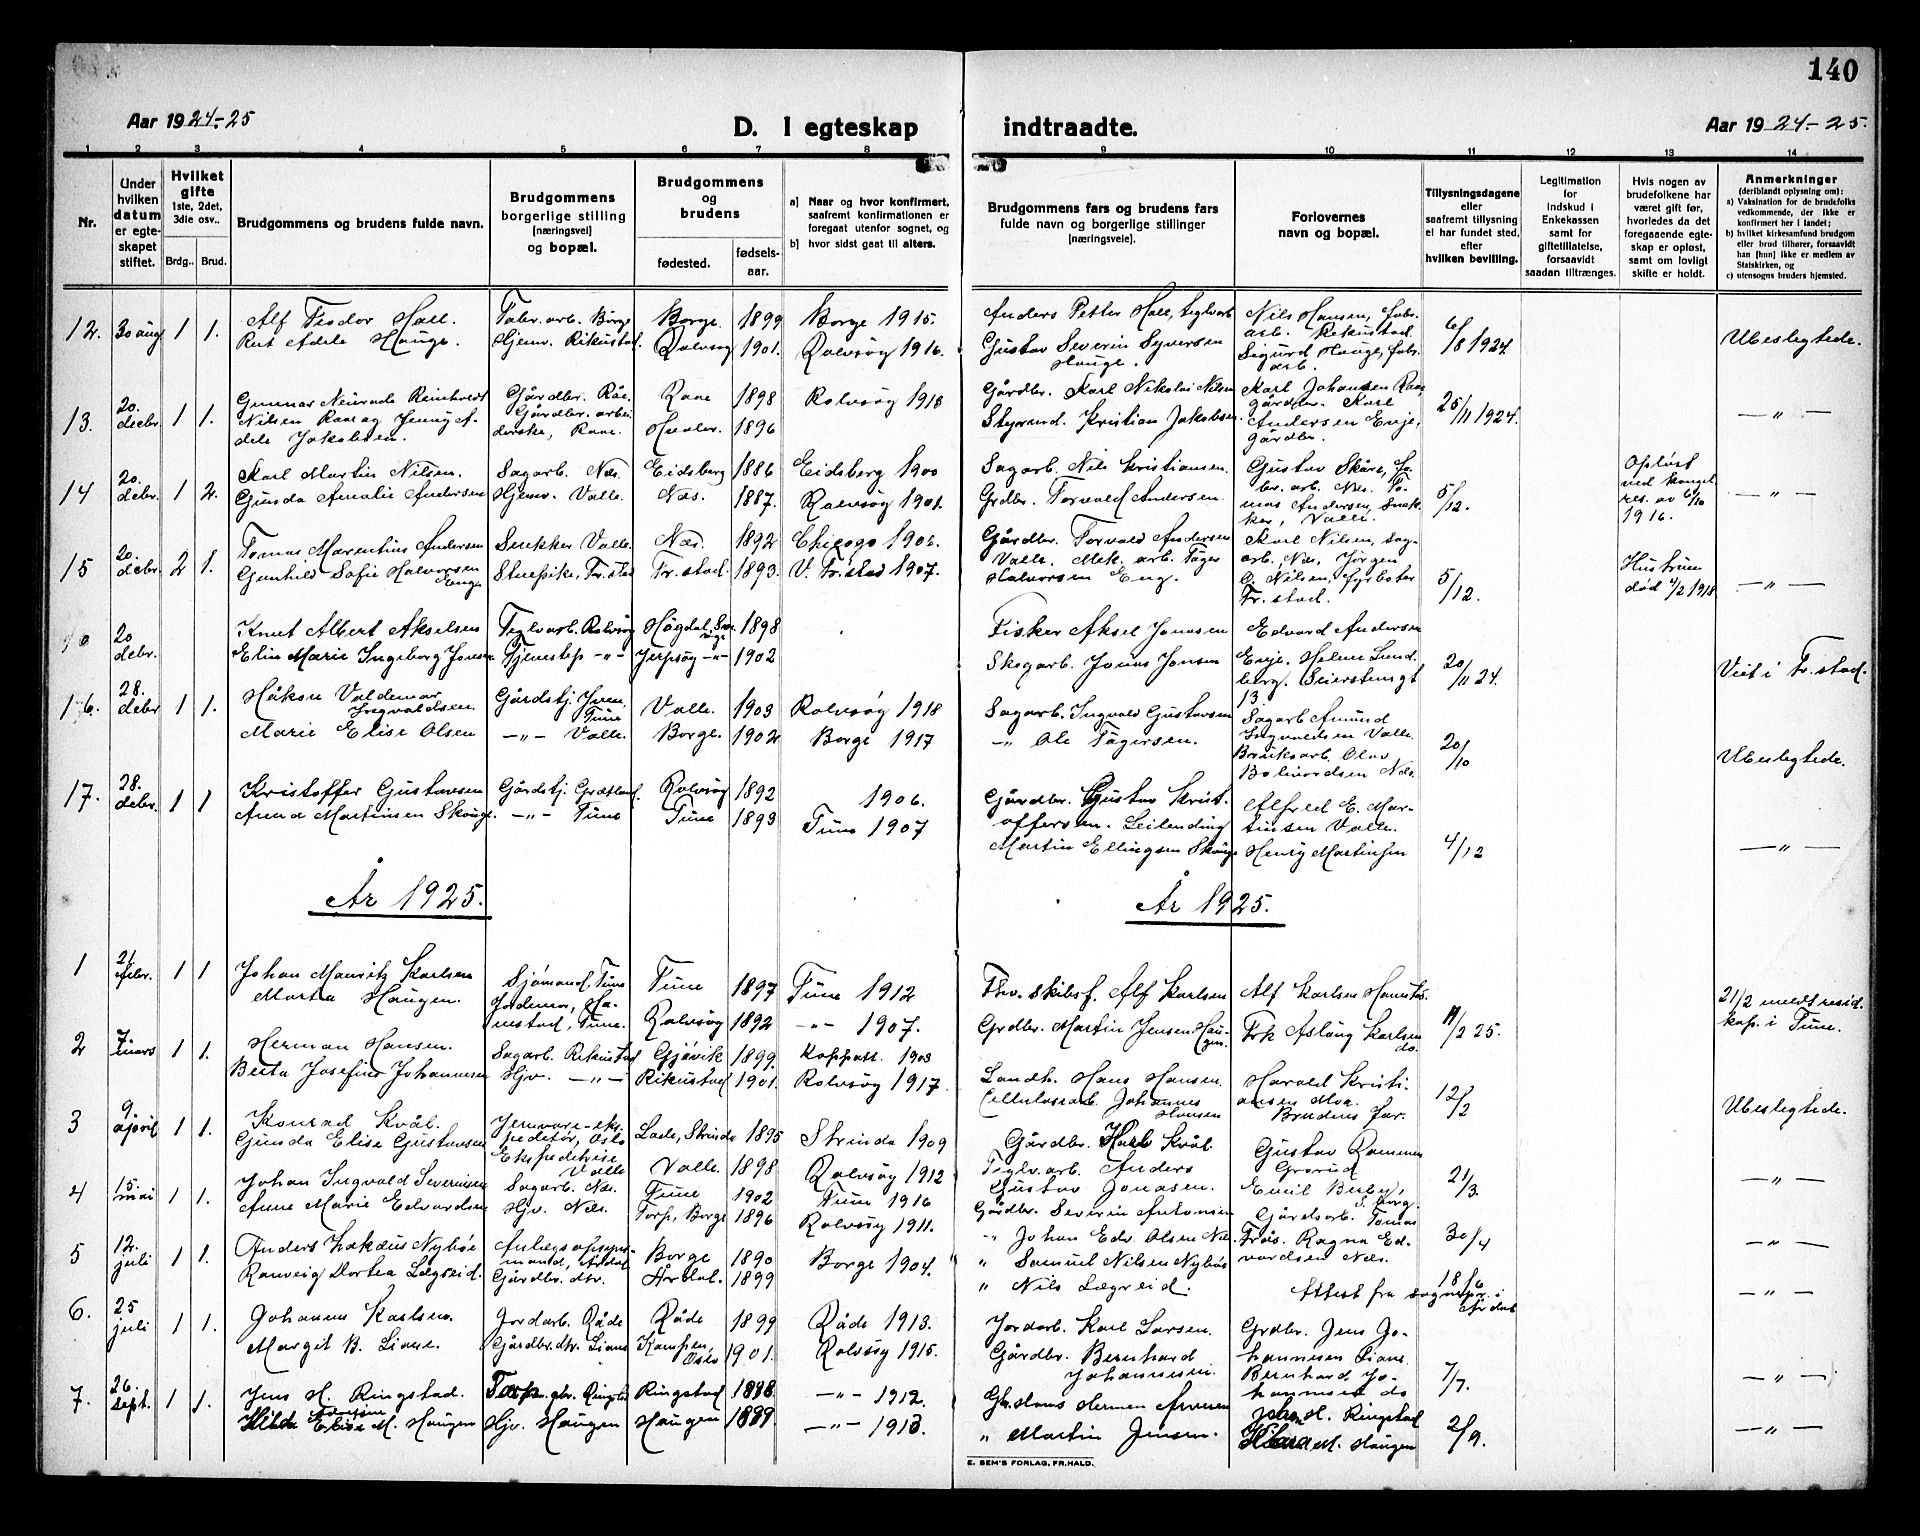 140
Aar 1924-25
D. I egteskap indtraadte.
Aar 1924-25.
1 2 3 4 5 6 7 8 9 10 11 12 13 14
Nr.
Under hvilken datum er egteskapet stiftet.
Hvilket gifte 1ste, 2det, 3die osv..
Brdg.. Brud.
Brudgommens og brudens fulde navn.
Brudgommens borgerlige stilling [næringsvei] og bopæl.
Brudgommens og brudens
fødested. fødselsaar.
a) Naar og hvor konfirmert, saafremt konfirmationen er foregaat utenfor sognet, og
b) hvor sidst gaat til alters.
Brudgommens fars og brudens fars fulde navn og borgerlige stillinger [næringsveie].
Forlovernes navn og bopæl.
Tillysningsdagene eller saafremt tillysning ei har fundet sted, efter hvilken bevilling.
Legitimation for indskud i Enkekassen samt for giftetillatelse, forsaavidt saadan tiltrænges.
Hvis nogen av brudefolkene har været gift før, hvorledes da det foregaaende egteskap er opløst, samt om lovligt skifte er holdt.
Anmerkninger (deriblandt oplysning om): a) Vaksination for de brudefolks vedkommende, der ikke er konfirmert her i landet; b) hvilket kirkesamfund brudgom eller brud tilhører, forsaavidt han [hun] ikke er medlem av Statskirken, og c) utensogns bruders hjemsted.
12. 30 aug 1 1. Alf Teodor Hall. Fabr. arb. Borge Borge. 1899 Borge 1915. Anders Petter Hall, teglvarb Nils Hansen, fabr. arb. Rikustad. 6/8 1924 Ubeslegtede.
Rut Adele Hauge. Hjemv. Rikustad. Rolvsøy 1901. Rolvsøy 1916. Gustav Severin Syversen Hauge. Sigurd Hauge, fabr. arb.
13. 20. debr. 1 1. Gunnar Neurade Reinholdt Nilsen Raae og Jenny Adele Jakobsen. Gårdbr. Råe. Gårdbr. arbeiderske, Raae. Raae 1898 Rolvsøy 1918 Gårdbr. Karl Nikolai Nilsen Karl Johansen Raae, gårdbr. Karl 25/11 1924. — " —
Hvaler. 1896 Styrmd. Kristian Jakobsen. Andersen Evje, gårdbr.
14 20. debr. 1 2. Karl Martin Nilsen. Sagarb. Næs. Eidsberg 1886 Eidsberg 1900 Sagarb. Nils Kristiansen. Gustav Skåre, fabr. arb. Næs. 5/12. Opløst ved kongel. res. av 6/10 1916. — " —
Gunda Amalie Andersen Hjemv. Valle. Næs. 1887. Rolvsøy 1901. Grdbr. Torvald Andersen. Tomas Andersen, Snekker, Valle.
15 20. debr. 2 1. Tomas Marentius Andersen Snekker Valle. Næs. 1892 Chicago 1906. Gårdbr. Torvald Andersen Valle. Karl Nilsen, sagarb., Næs. 5/12. Hustruen død 4/2 1918 — " —
Gunhild Sofie Halvorsen Eng. Stuepike, Fr. stad Fr. stad. 1893. V. Fr. stad 1907. Mek. arb. Tøger Halvorsen Eng. Jørgen O. Nilsen, fyrbøter Fr. stad.
20 debr. Knut Albert Akselsen Teglv arb. Rolvsøy Högdal, Sverige 1898 Fisker Aksel Jonasen Edvard Andersen Evje. 20/11 24. Viet i Fr. stad.
Elin Marie Ingeborg Jonsen Tjenestep — " — Jerpsøy — " — 1902 Skogarb. Jonas Jonsen Helene Lundberg. Seierstensgt 13.
16. 28. debr 1 1. Håkon Valdemar Ingvaldsen. Gårdstj. Tune Valle. 1903 Rolvsøy 1918 Sagarb. Ingvald Gustavsen Sagarb Amund Ingvaldsen Valle. 20/10 Ubeslegtede.
Marie Elise Olsen — " — Valle. Borge. 1902 Borge 1917 — " Ole Tøgersen. Bruksarb. Olav Næs.
17. 28. debr. 1 1 Kristoffer Gustavsen Gårdstj. Rolvsøy 1892 1906. Gårdbr. Gustav Kristoffersen. Alfred E. Martinsen Valle. 4/12 — " —
Martinsen Skauge. — " — Tune Tune 1893 Tune 1907 Leilending Martin Ellingsen Skauge Henry Martinsen
År 1925. År 1925.
1 21. febr. 1 1 Johan Mauritz Karlsen Sjømand, Tune Tune 1897 Tune 1912 Fhv. skibsf. Alf Karlsen Alf Karlsen 11/2 25. 21/2 med resid. kap. i Tune.
Marta Haugen. Jordemor, Tune. Rolvsøy 1892 — " — 1907. Grdbr. Martin Jensen Haugen. Frk Aslaug Karlsen do.
2 7 mars 1 1. Herman Hansen. Sagarb. Rikustad Gjøvik 1899. 1903 Landh. Hans Hansen. Harald Kristiansen Moa. 12/2 Ubeslegtede.
Berta Josefine Johannesen Hjv. — " — Rikustad 1901. Rolvsøy 1917. Cellulosearb. Johannes Hansen Brudens far.
3 9 april 1 1. Konrad Kvål. Jernvare-ekspeditør, Oslo Lade, Strinda 1895 Strinda 1909 Gårdbr. Karl Kvål. Gustav Rammen Grorud 21/3. — " —
Gunda Elise Gustavsen Ekspeditrise Valle Valle. 1898 Rolvsøy 1912 Teglv. arb. Anders Gustav Jonasen. Emil
4 15. mai 1 1. Johan Ingvald Severinsen Sagarb. Næs. Tune 1902 Tune 1916 Gårdbr. Severin Antonsen Gårdsarb. Tomas 30/4 — " —
Anne Marie Edvardsen Hjv. Næs. Torp, Borge 1896 Rolvsøy 1911. " Johan Edv. Olsen Næs. Ragna Edvardsen Næs.
5 12. juli 1 1. Anders Nybøe Anlegsopsynsmand, Årdal Borge 1890 Borge 1904. " Samuel Nilsen Nybøe Attest fra sognepr. i Årdal 18/6 — " —
Ranveig Dortea Lægreid. Gårdbr. dtr. Årdal. 1899 " Nils Lægreid.
6. 25 juli 1 1. Johannes Karlsen. Jordarb. Råde Råde 1899 Råde 1913. Jordarb. Karl Larsen. Grdbr. Jens Johannesen Liane. 7/7. — " —
Margit B. Liane. Gårdbr. dtr. Liane Kampen, Oslo 1901. Rolvsøy 1915. Gårdbr. Bernhard Johannesen. Bernhard Johannesen do
7. 26. sept. 1 1. Jens H. Ringstad. gbr. Ringstad Ringstad 1888 — " — 1912. Gbr. Hans Herman Arnesen H. Ringstad 2/9. — " —
Hilda M. Haugen Hjv. Haugen Haugen 1899 — " — 1913. " Martin Jensen. Klara M. Haugen
E. SEM'S FORLAG, FR.HALD.